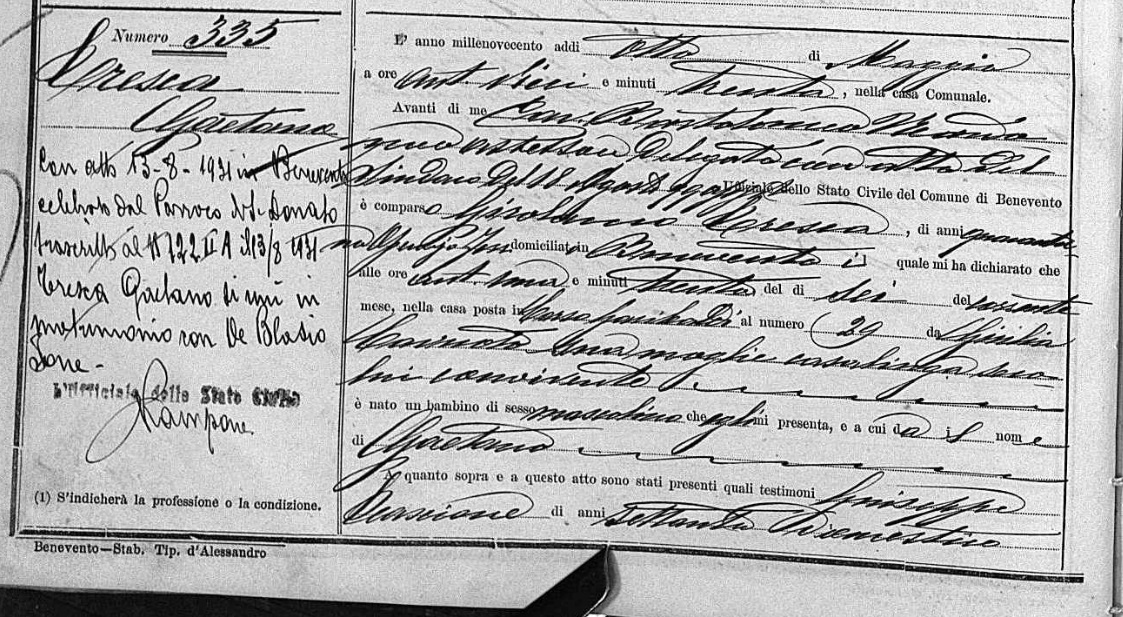 Numero 335
Cresca
Gaetano
Con atto 13-8-1931 in Benevento
celebrato dal Parroco di S. Donato
trascritto al N 122 II A il 13/8 1931
Cresca Gaetano si unì in
matrimonio con De Blasio
L'Ufficiale dello Stato Civile
Rampone
(1) S'indicherà la professione o la condizione.
Benevento—Stab. Tip. d'Alessandro
L' anno millenovecento addì otto di Maggio
a ore ant. dieci e minuti trenta, nella casa Comunale.
Avanti di me Cav.
delegato con atto del
Sindaco del 18 Agosto Ufficiale dello Stato Civile del Comune di Benevento
è comparso Girolamo Cresca, di anni quaranta
domiciliato in Benevento il quale mi ha dichiarato che
alle ore ant. una e minuti trenta del dì sei del corrente
mese, nella casa posta in Corso Garibaldi al numero 29 da Giulia
sua moglie casalinga seco
lui convivente
è nato un bambino di sesso mascolino che egli mi presenta, e a cui dà il nome
di Gaetano
A quanto sopra e a questo atto sono stati presenti quali testimoni Giuseppe
di anni settanta